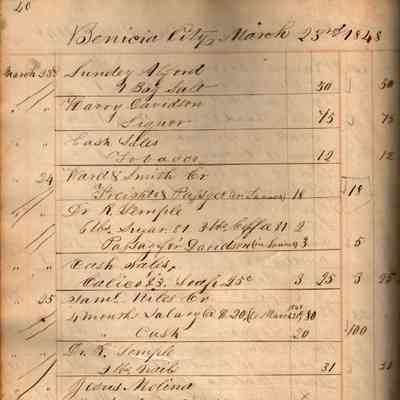 40
Benicia City, March 23rd 1848
March 23d Lundey Alford
1 Bag Salt 50 50
" " Harry Davidson
Liquor 75 75
" " Cash Sales
Tobacco 12 12
" 24 Ward & Smith Cr
Freight & Passage 18 18
" " Dr R. Semple
6 lbs Sugar $1 3 lbs Coffee $1 2
Passage for Davidson 3 5
" " Cash Sales,
Calico $3. Soap 25c 3 25 3 25
" 25 Saml Niles Cr
4 month Salary @ $20, 80
" Cash 20 100
" " Dr. R. Semple
2 lbs Nails 31
" " Jesus Molina